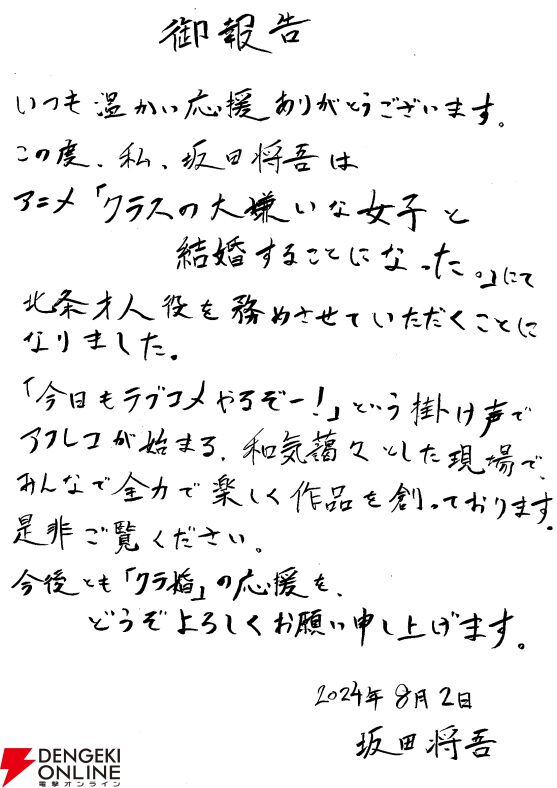 御報告
いつも温かい応援ありがとうございます。
この度、私、坂田将吾は
アニメ「クラスの大嫌いな女子と
結婚することになった。」にて
北条才人役を務めさせていただくことに
なりました。
「今日もラブコメやるぞー!」という掛け声で
アフレコが始まる、和気藹々とした現場で、
みんなで全力で楽しく作品を創っております。
是非ご覧ください。
今後とも「クラ婚」の応援を、
どうぞよろしくお願い申し上げます。
2024年8月2日
坂田将吾
DENGEKI
ONLINE
電撃オンライン